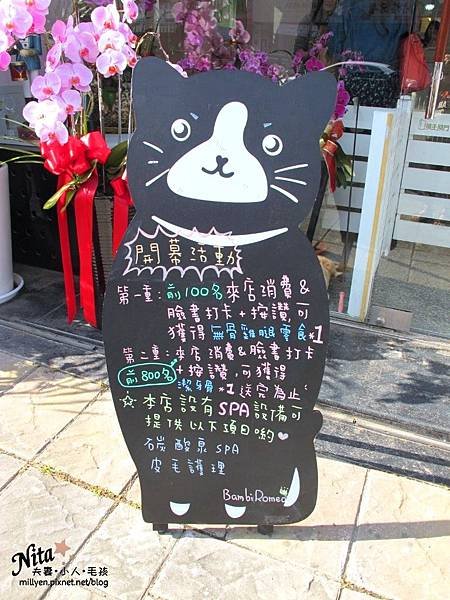 開幕活動
第一重：前100名來店消費&
臉書打卡+按讚，可
獲得無骨雞腿零食*1
第二重：來店消費&臉書打卡
前800名+按讚，可獲得
潔牙骨*1送完為止
☆本店設有SPA設備可
提供以下項目喲♥
碳酸泉SPA
皮毛護理
BambiRomeo
Nita★
夫妻•小人•毛孩
millyen.pixnet.net/blog